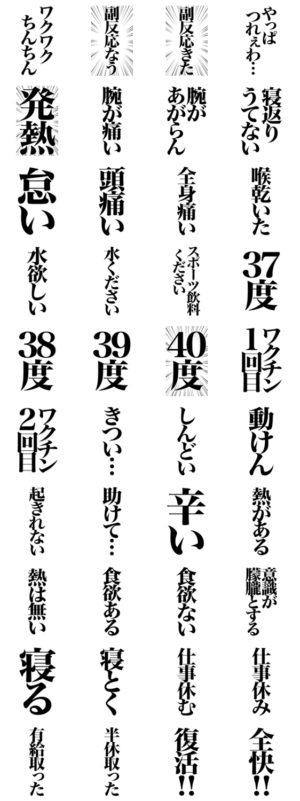 ワクワク
ちんちん
副反応なう
副反応きた
やっぱ
つれぇわ…
発熱
腕が痛い
腕が
あがらん
寝返り
うてない
怠い
頭痛い
全身痛い
喉乾いた
水欲しい
水ください
スポーツ飲料
ください
37度
38度
39度
40度
ワクチン
1回目
ワクチン
2回目
きつい…
しんどい
動けん
起きれない
助けて…
辛い
熱がある
熱は無い
食欲ある
食欲ない
意識が
朦朧とする
寝る
寝とく
仕事休む
仕事休み
有給取った
半休取った
復活!!
全快!!